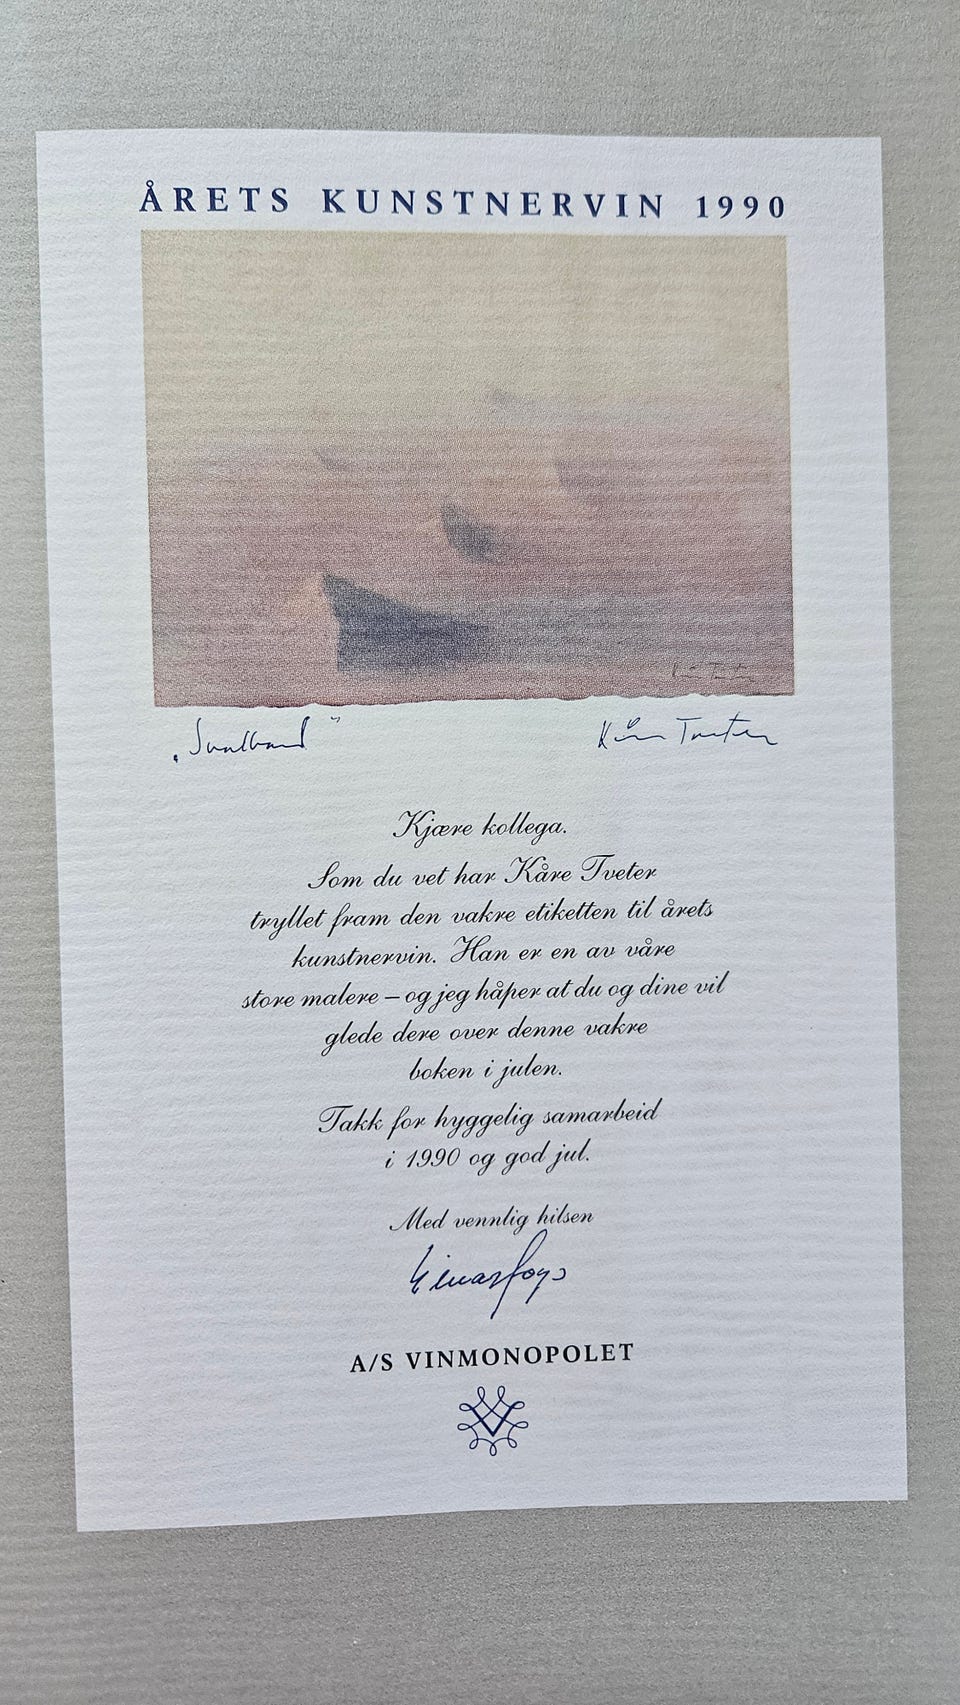 ÅRETS KUNSTNERVIN 1990
Kåre Tveter
„Svalbard” Kåre Tveter
Kjære kollega.
Som du vet har Kåre Tveter
tryllet fram den vakre etiketten til årets
kunstnervin. Han er en av våre
store malere – og jeg håper at du og dine vil
glede dere over denne vakre
boken i julen.
Takk for hyggelig samarbeid
i 1990 og god jul.
Med vennlig hilsen
A/S VINMONOPOLET